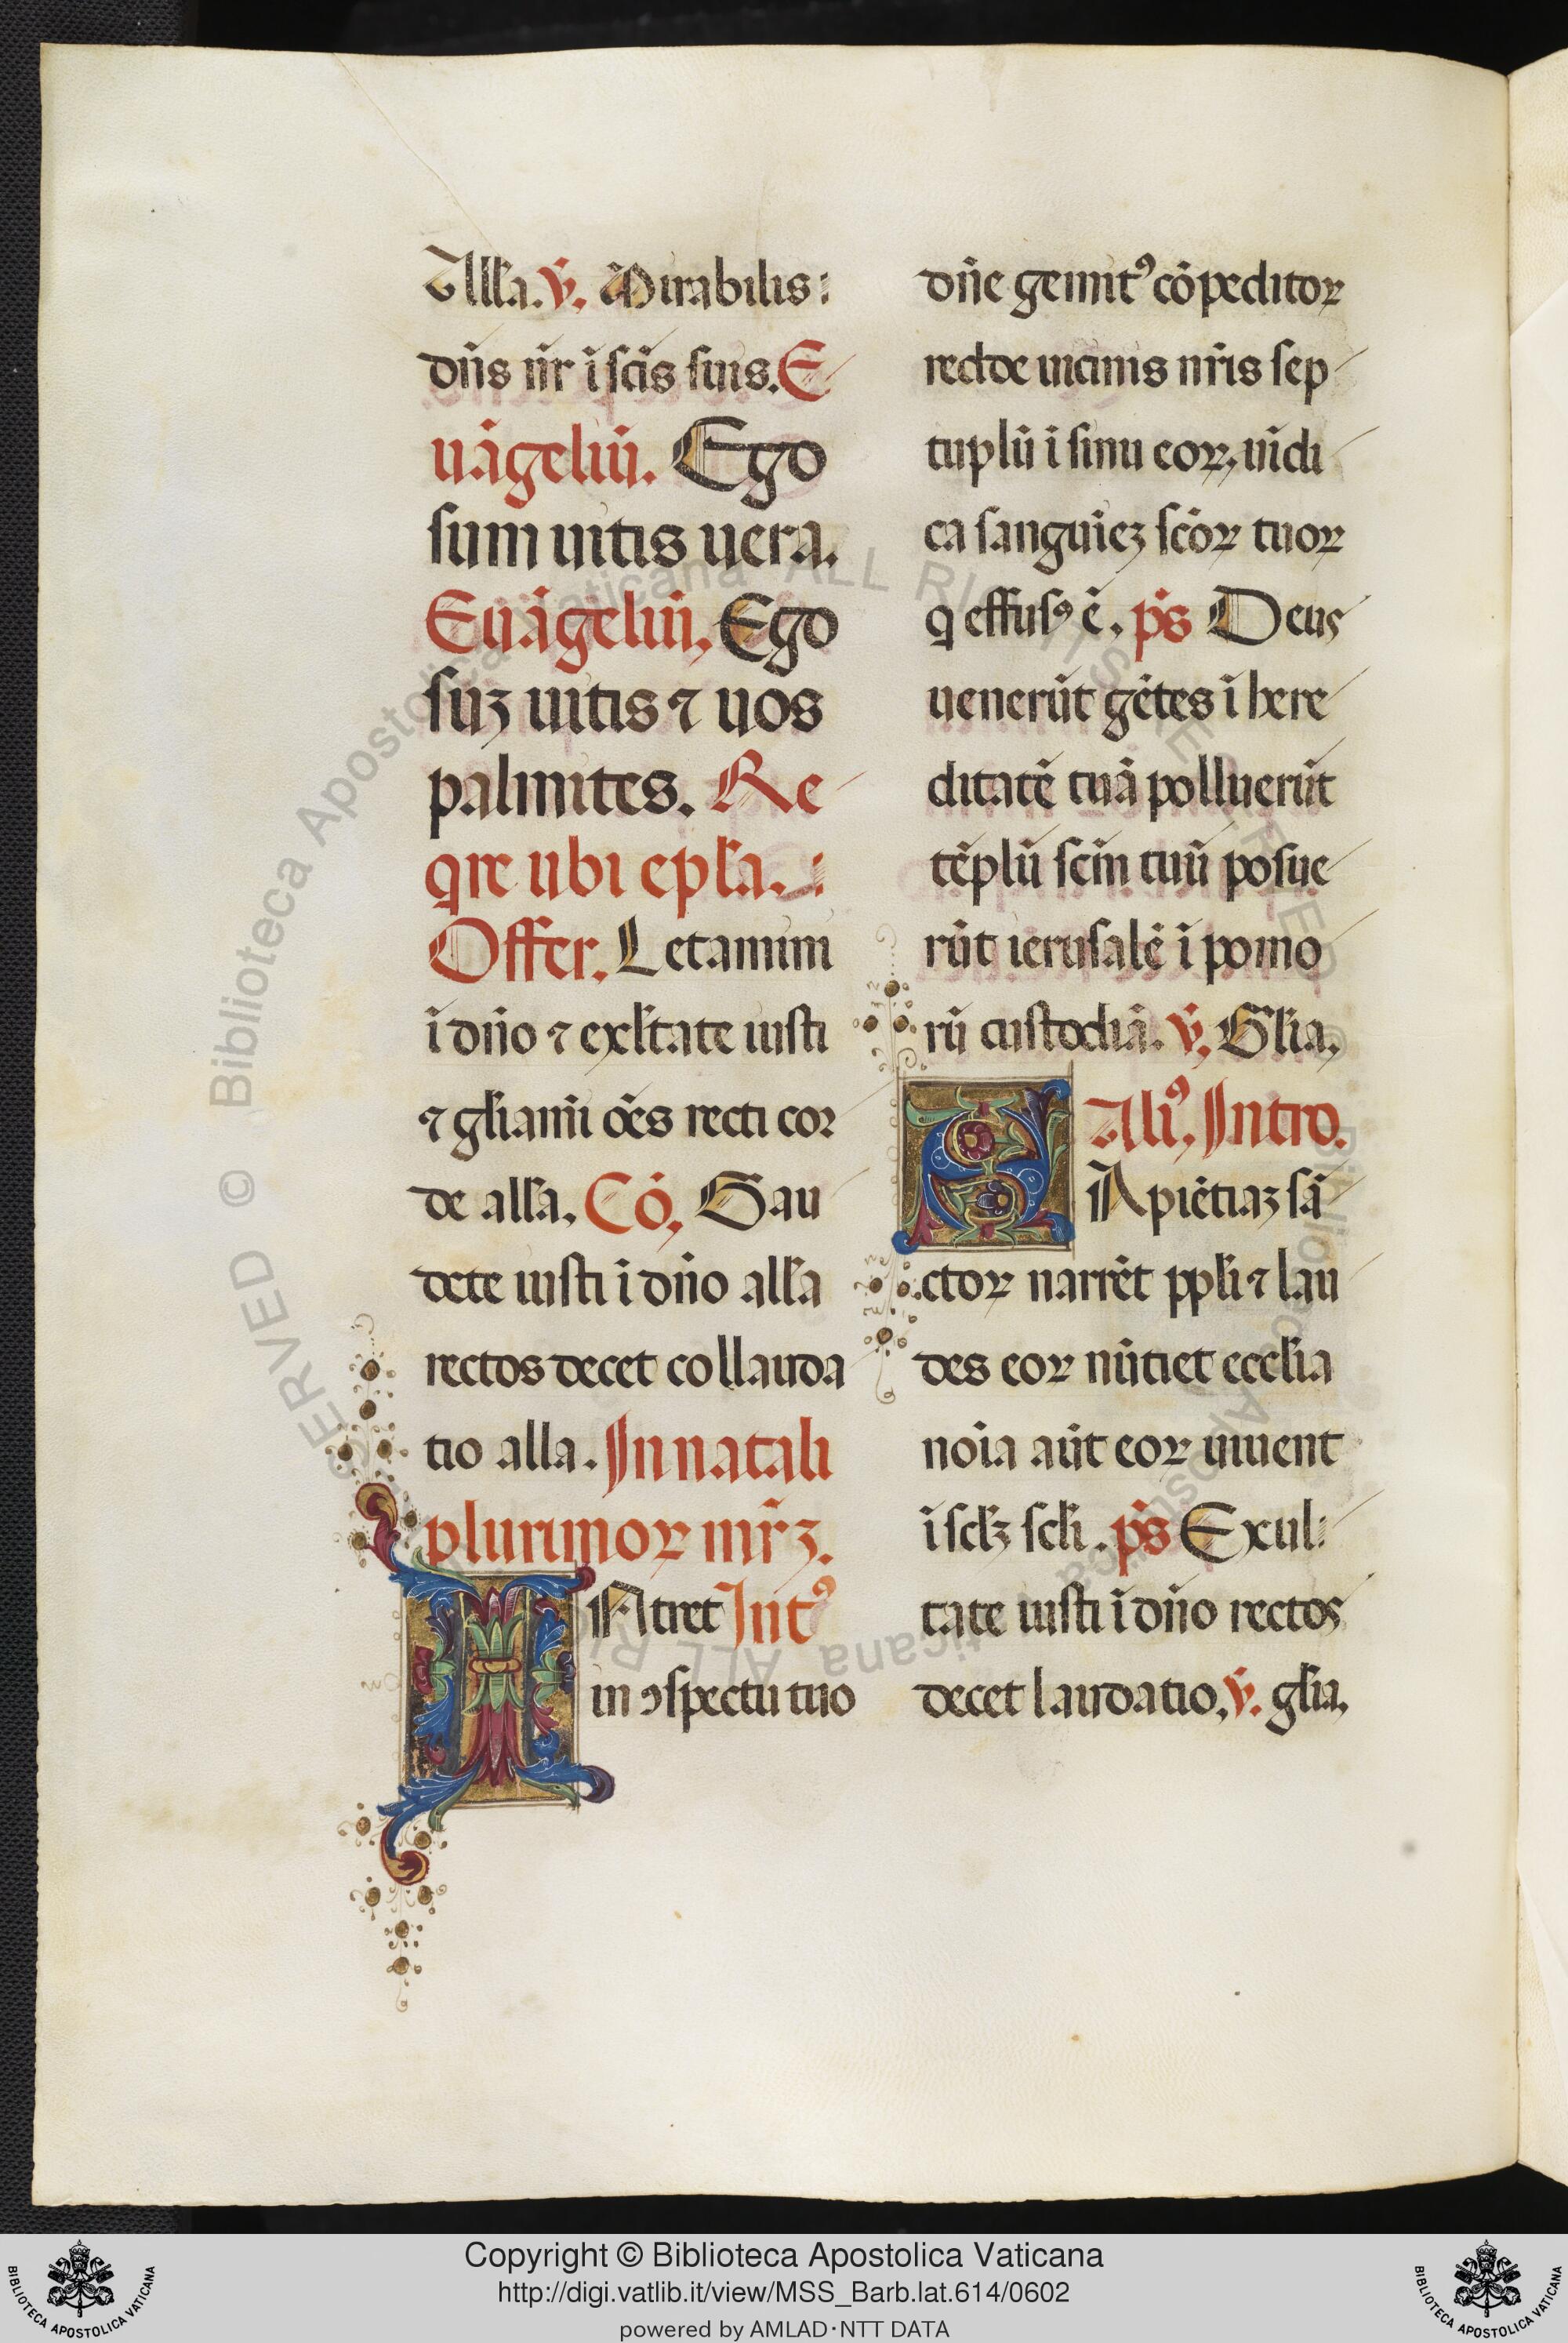 Alla. v̄. Mirabilis:
dn̄s nr̄ ī scīs suis. E
uāgeliū. Ego
sum uitis uera.
Euāgeliū, Ego
suꝫ uitis ⁊ uos
palmites. Re
qre ubi epła.
Offer. Letamini
ī dn̄o ⁊ exłtate iusti
⁊ głiamī oēs recti cor
de alła, Cō, Gau
dete iusti ī dn̄o alła
rectos decet collauda
tio alla. In natali
plurimoꝝ mr̄ꝫ.
INtret Intꝰ
in ꝯspectu tuo
dn̄e gemitꝰ cōpeditoꝝ
redde uicinis nr̄is sep
tuplū ī sinu eoꝝ, uīdi
ca sanguīeꝫ scōꝝ tuoꝝ
q effusꝰ ē, ps̄ Deus
uenerūt gētes ī here
ditatē tuā polluerūt
tēplū scm̄ tuū posue
rūt ierusalē ī pomo
rū custodiā. v̄, Głia,
Aliꝰ, Intro.
SApiētiaꝫ sā
ctoꝝ narrēt ppłi ⁊ lau
des eoꝝ nūtiet ecclia
noīa aūt eoꝝ uiuent
ī scłꝫ scłi. ps̄ Exul:
tate iusti ī dn̄o rectos
decet laudatio, v̄. głia,
© Biblioteca Apostolica Vaticana ALL RIGHTS RESERVED
Copyright © Biblioteca Apostolica Vaticana
http://digi.vatlib.it/view/MSS_Barb.lat.614/0602
powered by AMLAD·NTT DATA
BIBLIOTECA APOSTOLICA VATICANA
BIBLIOTECA APOSTOLICA VATICANA